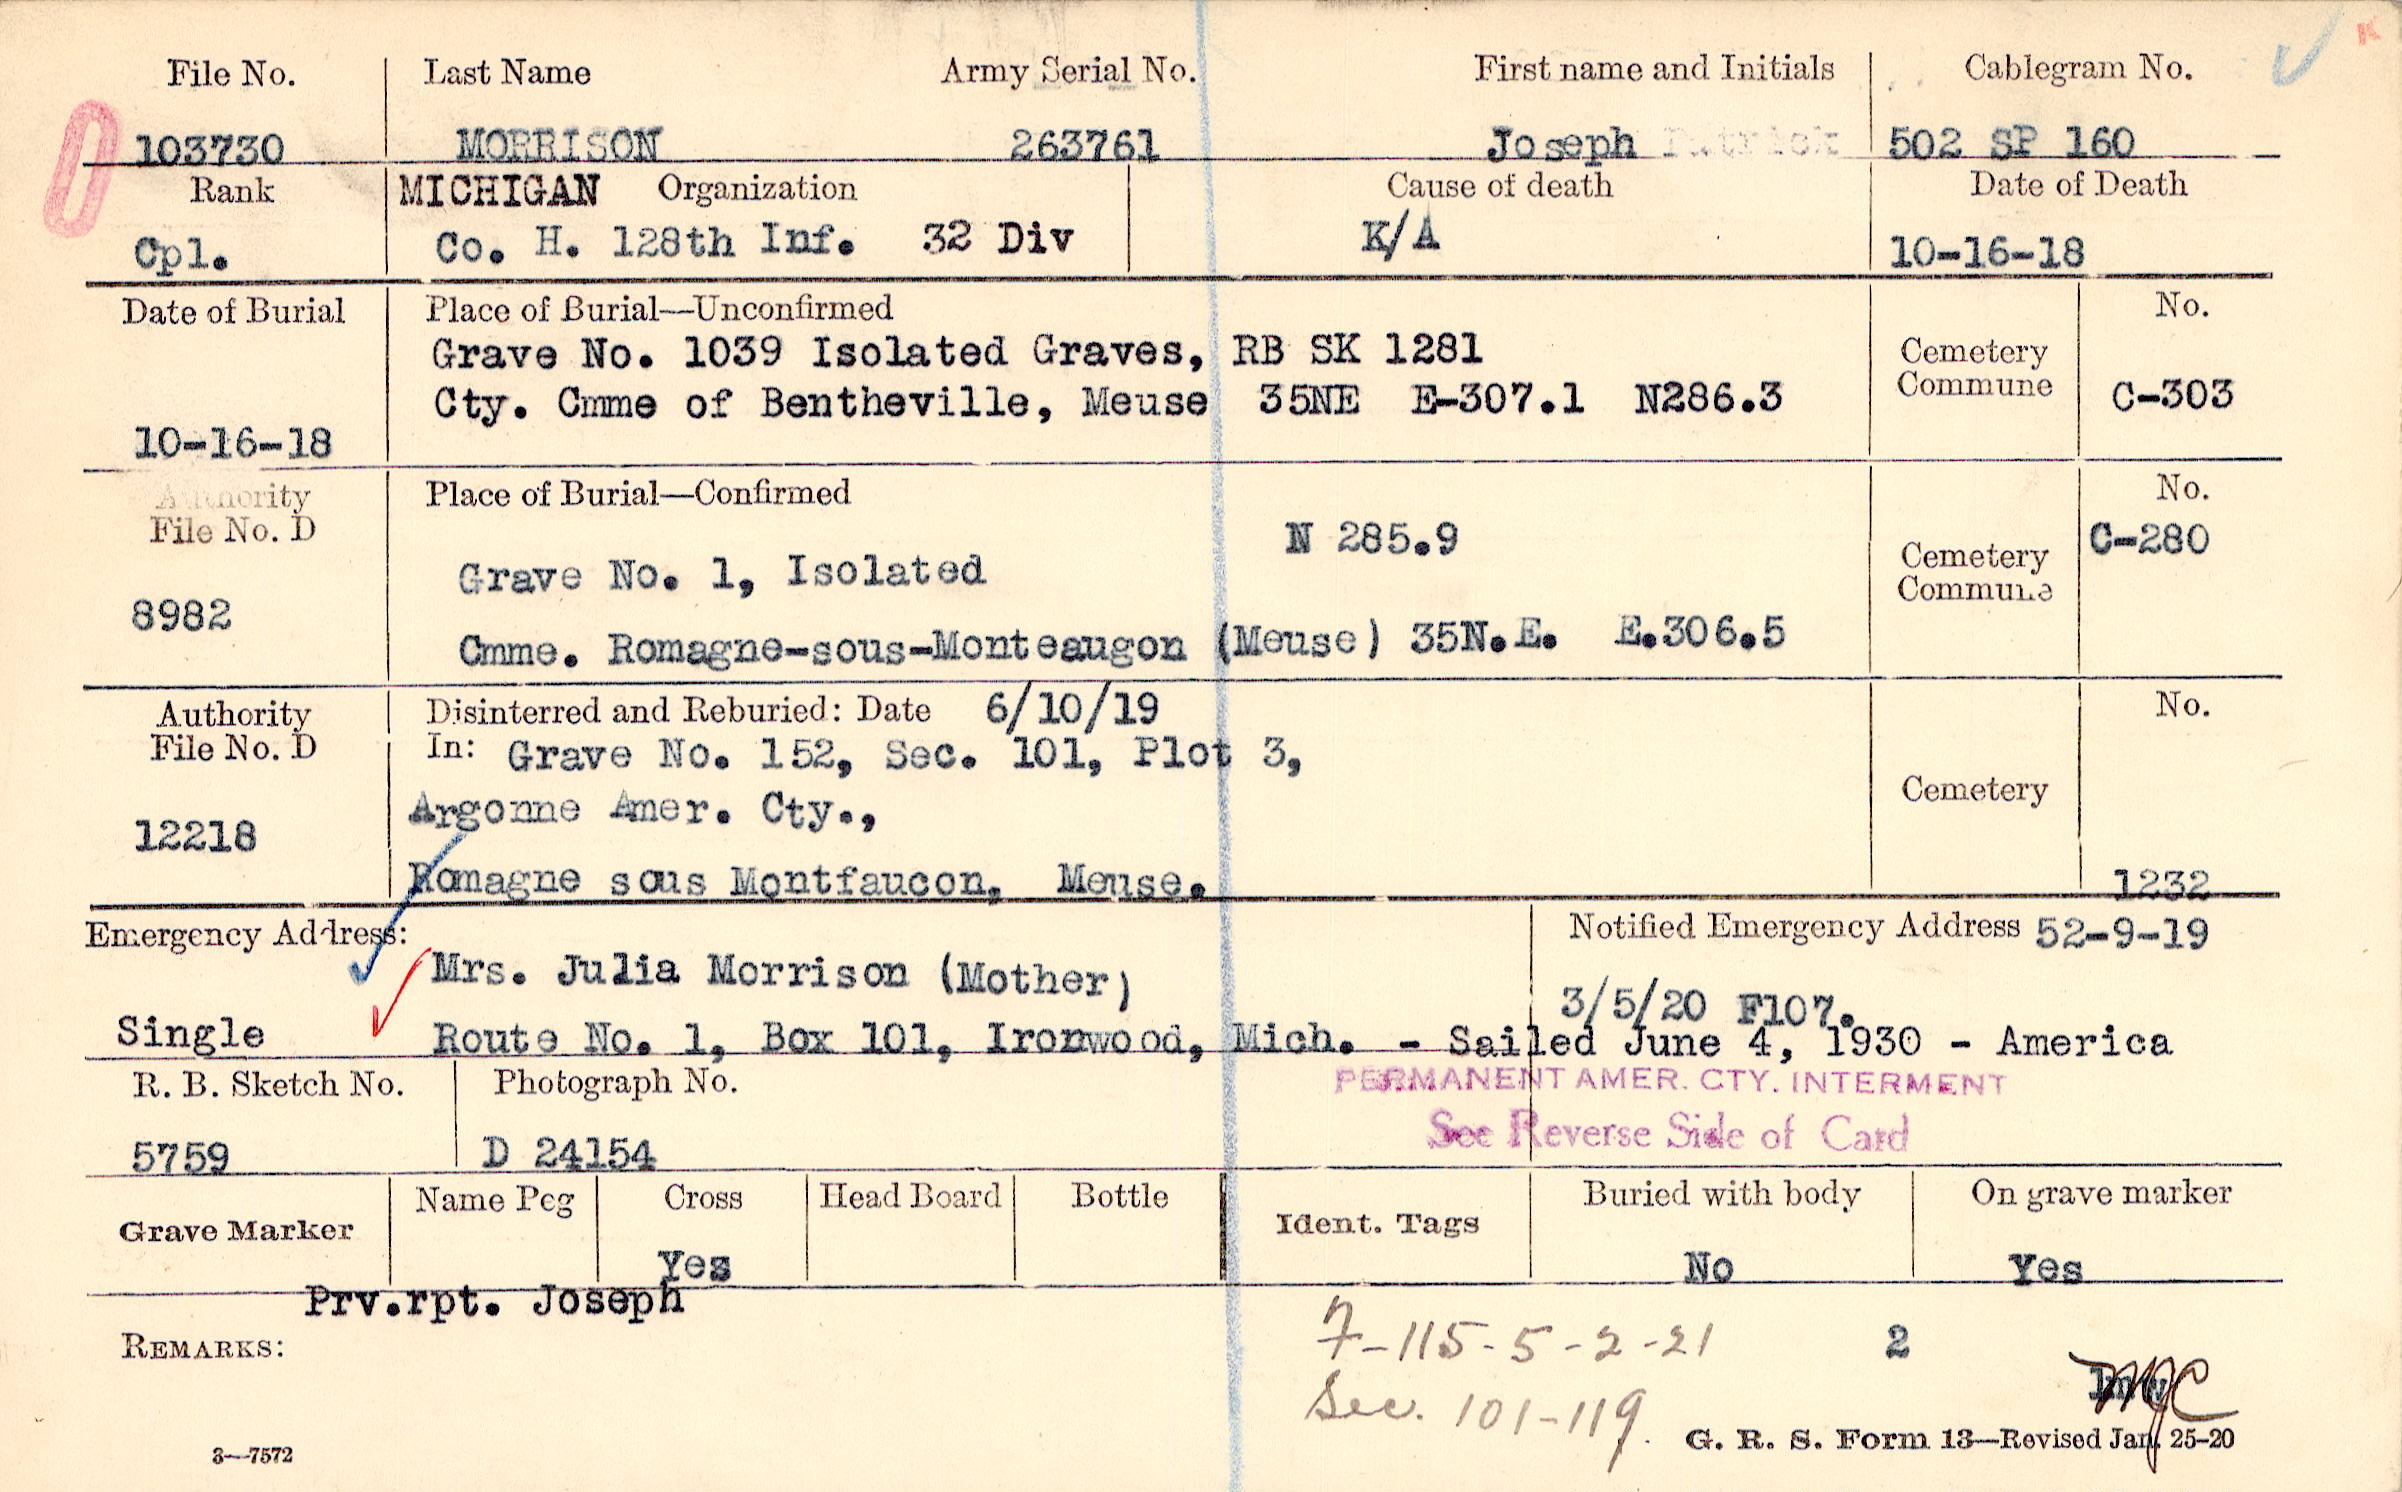 File No. Last Name Army Serial No. First name and Initials Cablegram No. K
103730 MORRISON 263761 Joseph Patrick 502 SP 160
Rank MICHIGAN Organization Cause of death Date of Death
Cpl. Co. H. 128th Inf. 32 Div K/A 10-16-18
Date of Burial Place of Burial—Unconfirmed No.
Grave No. 1039 Isolated Graves, RB SK 1281 Cemetery
Cty. Cmme of Bentheville, Meuse 35NE E-307.1 N286.3 Commune C-303
10-16-18
Authority Place of Burial—Confirmed No.
File No. D N 285.9 C-280
Grave No. 1, Isolated Cemetery
8982 Commune
Cmme. Romagne-sous-Monteaugon (Meuse) 35N.E. E.306.5
Authority Disinterred and Reburied: Date 6/10/19 No.
File No. D In: Grave No. 152, Sec. 101, Plot 3,
Argonne Amer. Cty., Cemetery
12218
Romagne sous Montfaucon, Meuse. 1232
Emergency Address: Notified Emergency Address 52-9-19
Mrs. Julia Morrison (Mother)
3/5/20 F107.
Single Route No. 1, Box 101, Ironwood, Mich. - Sailed June 4, 1930 - America
R. B. Sketch No. Photograph No. PERMANENT AMER. CTY. INTERMENT
See Reverse Side of Card
5759 D 24154
Grave Marker Name Peg Cross Head Board Bottle Ident. Tags Buried with body On grave marker
Yes No Yes
Prv.rpt. Joseph
REMARKS: 7-115-5-2-21 2
Sec. 101-119. MJC
3—7572 G. R. S. Form 13—Revised Jan. 25-20